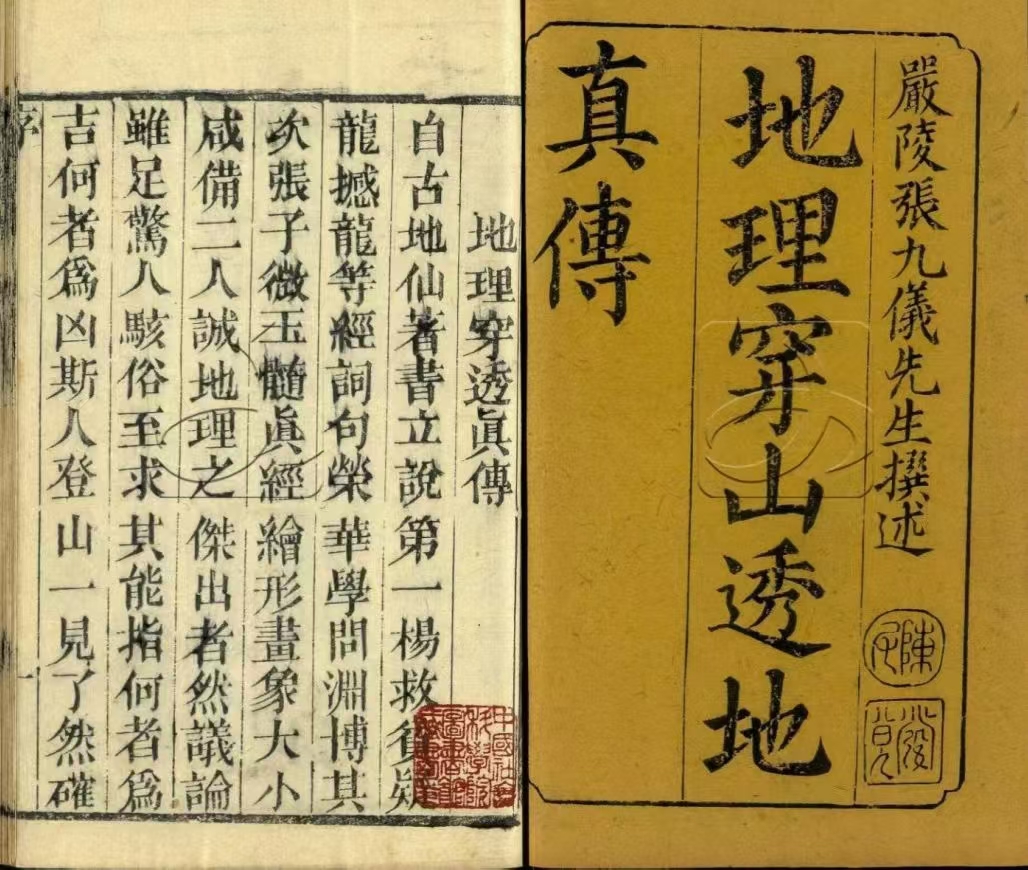 嚴陵張九儀先生撰述
地理穿山透地
真傳
地理穿透眞傳
自古地仙著書立說第一楊救貧疑
龍撼龍等經詞句榮華學問淵博其
次張子微玉髓眞經繪形畫象大小
咸備二人誠地理之傑出者然議論
雖足驚人駭俗至求其能指何者爲
吉何者爲凶斯人登山一見了然確
序
一